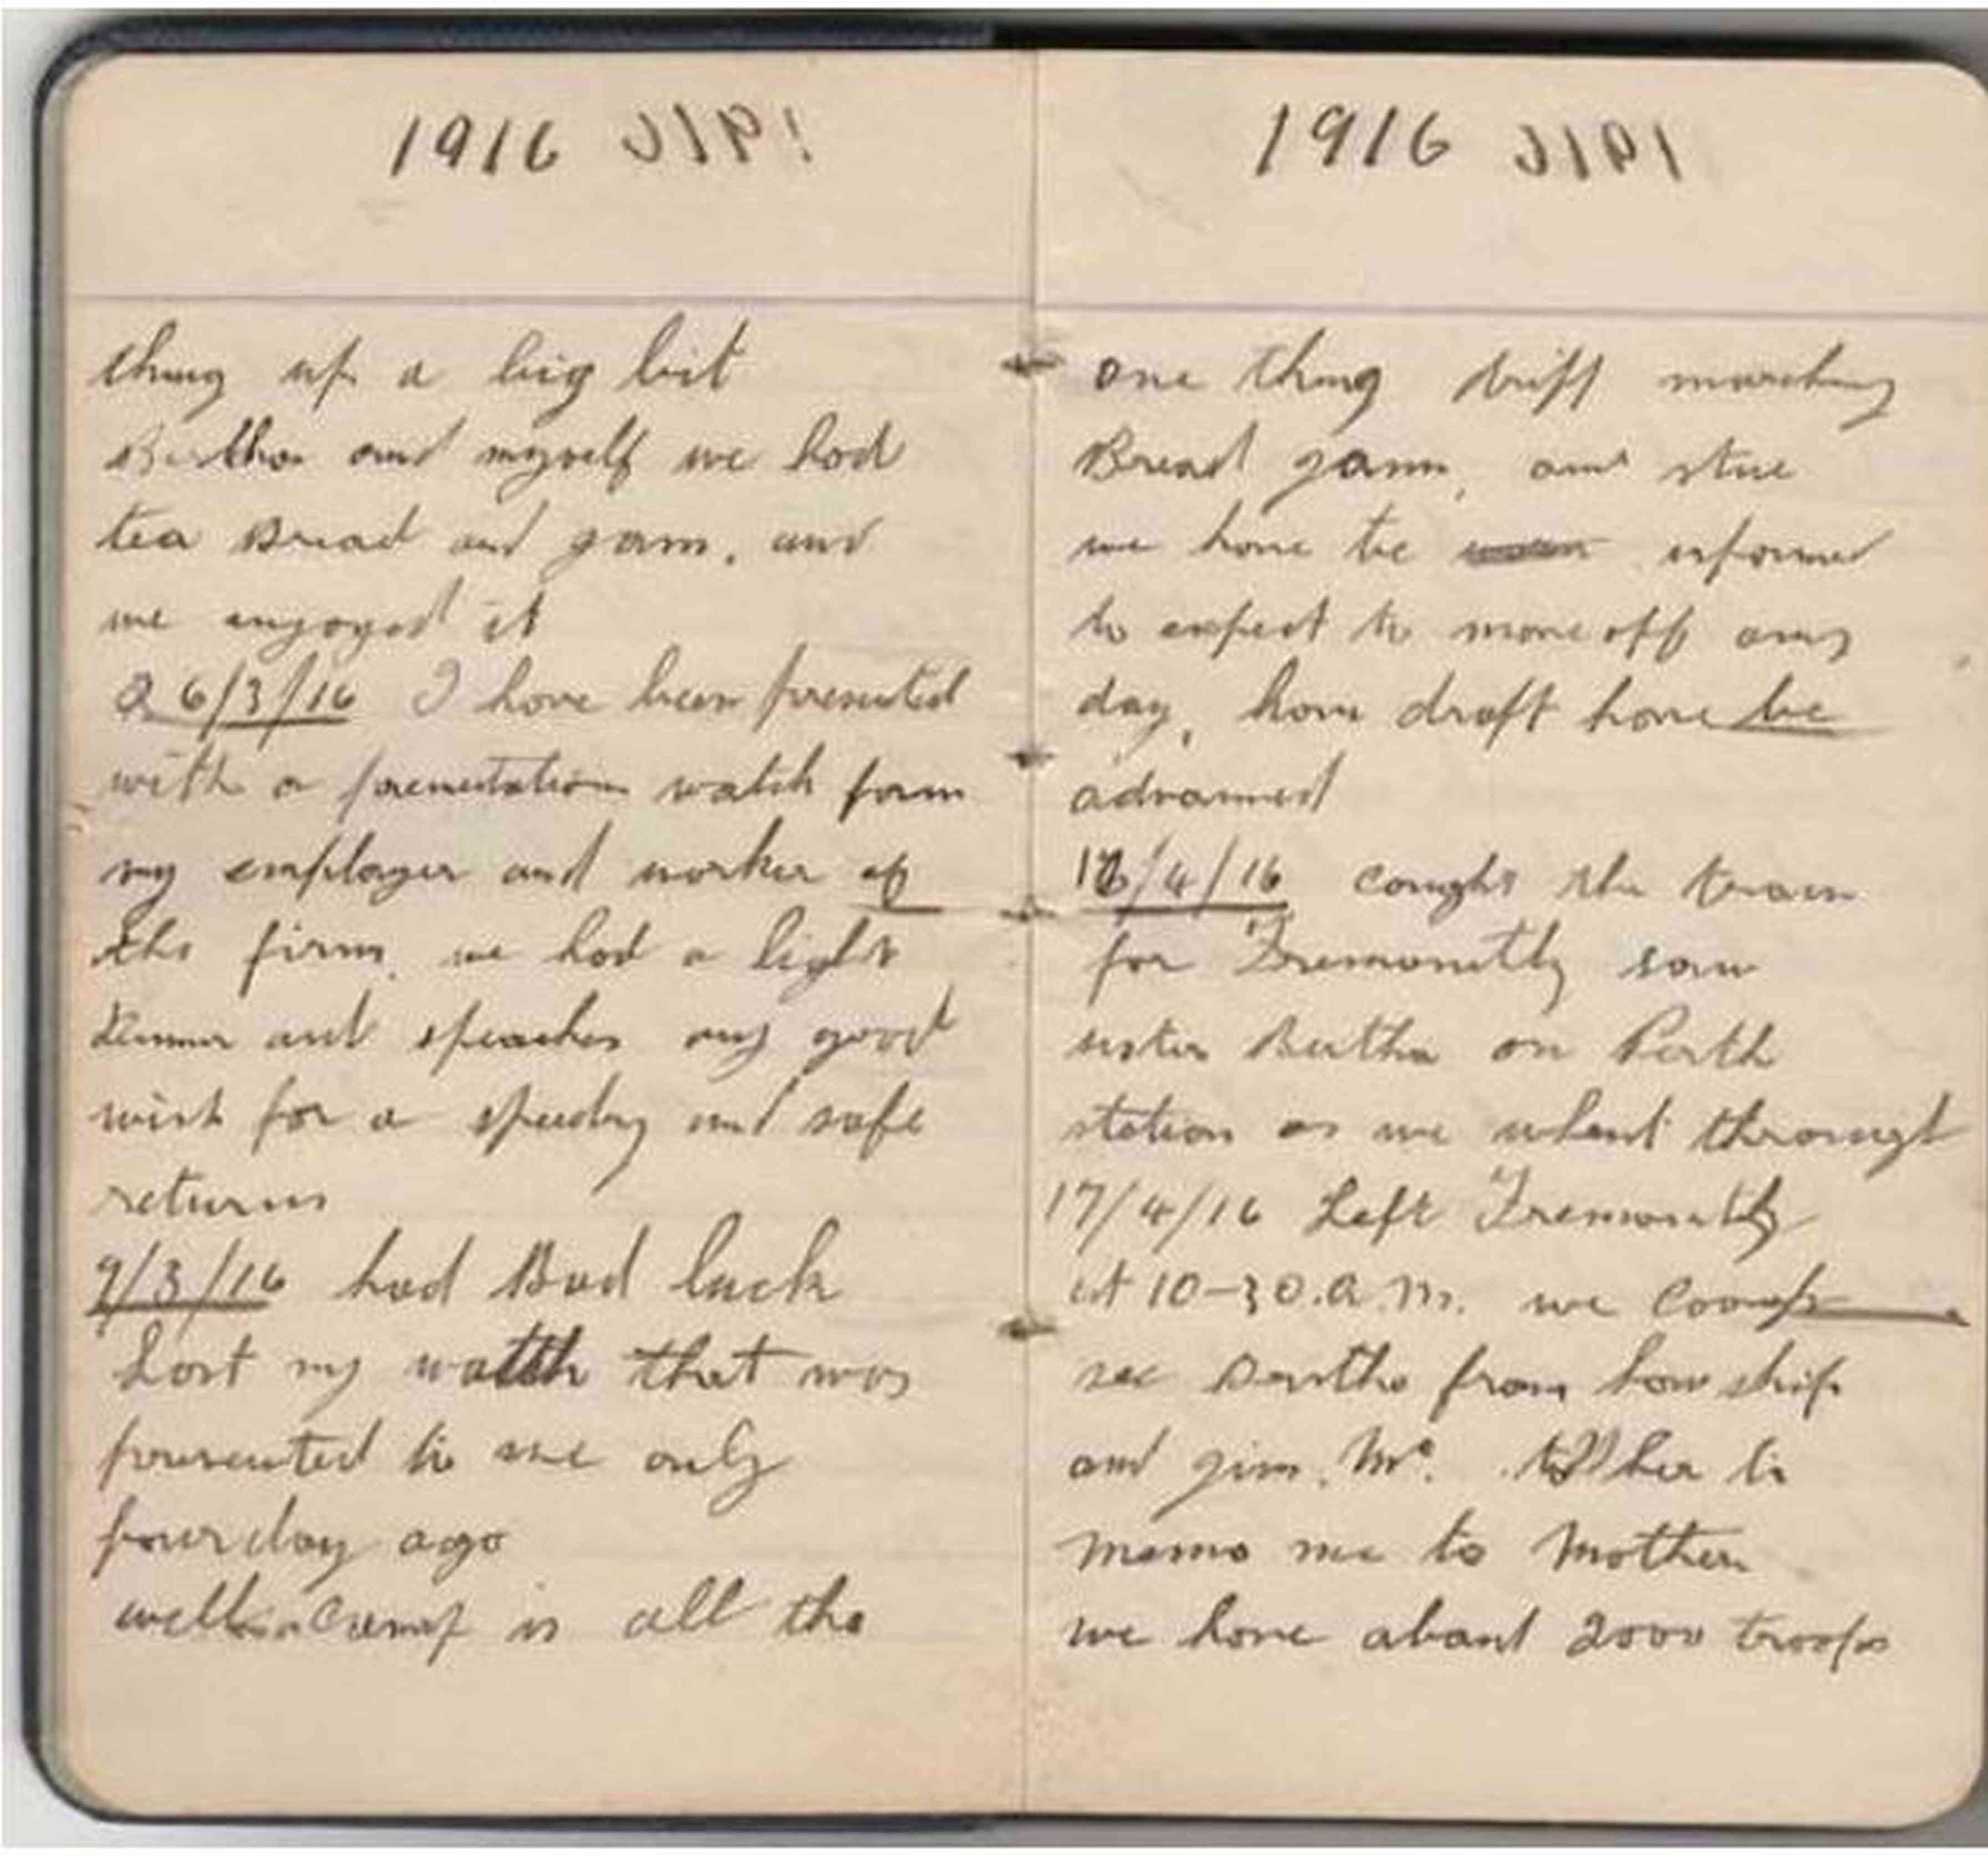 1916
thing up a big bit
Bertha and myself we had
tea Bread and gam, and
we engoged it
6/3/16 I have been presented
with a presentation watch form
my employer and worker of
the firm, we had a light
dinner and speaches my good
wish for a speedy and safe
returns
9/3/16 had Bad luck
Lost my watch that was
presented to me only
four day ago
well camp is all the
1916
one thing drill marching
Bread gamm, and stue
we have be informed
to expect to move off any
day, how draft have be
advanned
/4/16 cought the train
for Fremonitly saw
sister Bertha on Perth
station as we whent throught
17/4/16 Left Fremonitly
at 10-30.a.m. we
see Bertha from how ship
and gim. Mc. her to
memo me to Mother
we have abant 2000 troops